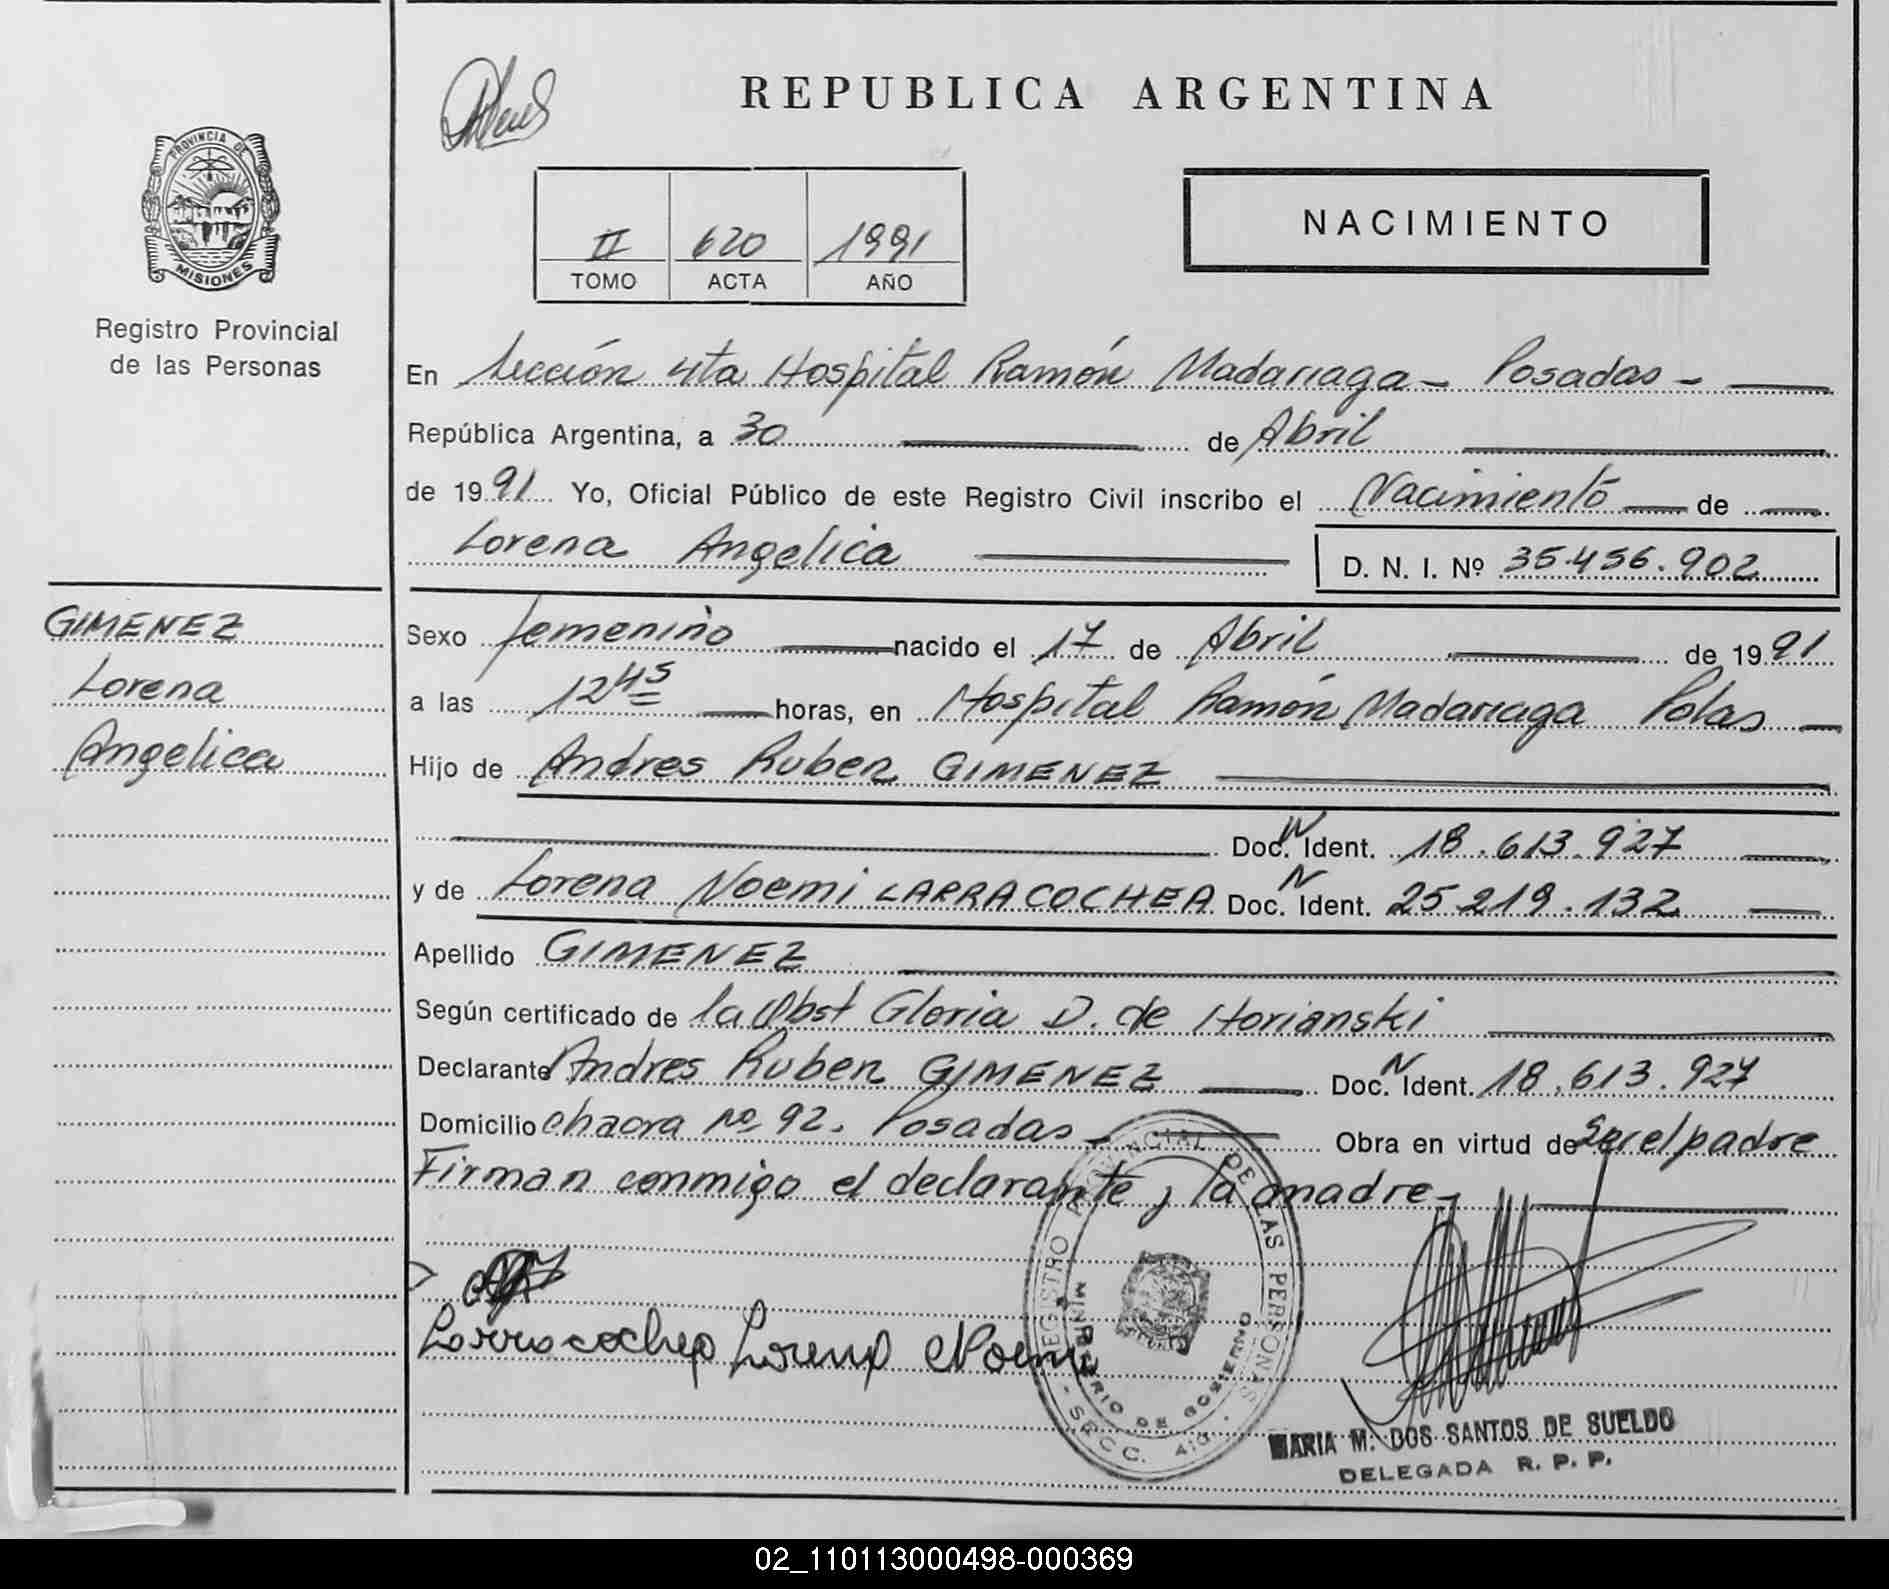 REPUBLICA ARGENTINA
PROVINCIA DE
MISIONES
Registro Provincial
de las Personas
II 620 1991
TOMO ACTA AÑO
NACIMIENTO
En Sección 4ta Hospital Ramón Madariaga - Posadas -
República Argentina, a 30 de Abril
de 1991 Yo, Oficial Público de este Registro Civil inscribo el Nacimiento de
Lorena Angelica D. N. I. Nº 35.456.902
GIMENEZ
Lorena
Angelica
Sexo femenino nacido el 17 de Abril de 1991
a las 12 45 horas, en Hospital Ramón Madariaga Pdas
Hijo de Andres Ruben GIMENEZ
Doc. N Ident. 18.613.927
y de Lorena Noemi LARRACOCHEA Doc. N Ident. 25.219.132
Apellido GIMENEZ
Según certificado de la Obst Gloria D. de Horianski
Declarante Andres Ruben GIMENEZ Doc. N Ident. 18.613.927
Domicilio chacra nº 92. Posadas - Obra en virtud de Ser el padre
Firman conmigo el declarante y la madre -
Larracochea Lorena Noemi
REGISTRO PROVINCIAL DE LAS PERSONAS
MINISTERIO DE GOBIERNO
- SECC. 4ta. -
MARIA M. DOS SANTOS DE SUELDO
DELEGADA R. P. P.
02_110113000498-000369